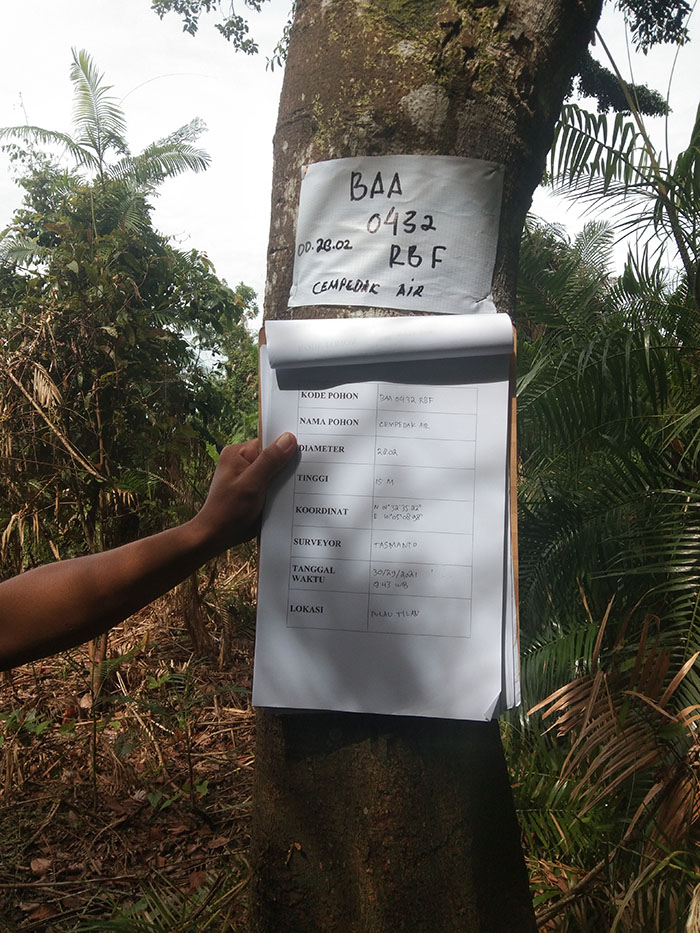 BAA
0432
DD.28.02 RBF
CEMPEDAK AIR
KODE POHON BAA 0432 RBF
NAMA POHON CEMPEDAK AIR
DIAMETER 28.02
TINGGI 15 M
KOORDINAT
SURVEYOR TASMANTO
TANGGAL
WAKTU
LOKASI PULAU TILAN